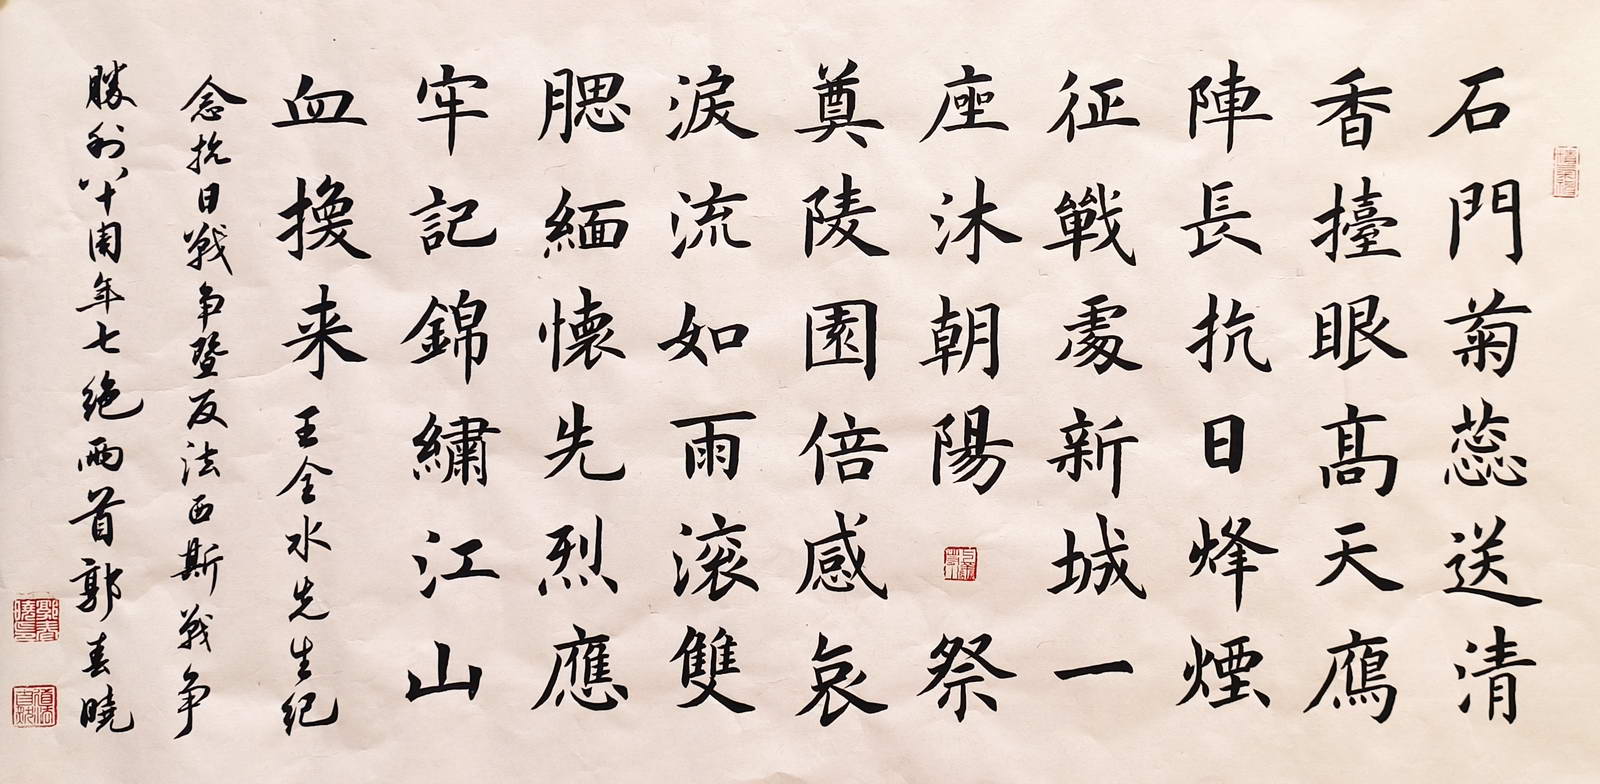 石門菊蕊送清
香擡眼髙天鷹
陣長抗日烽煙
征戰處新城一
座沐朝陽
祭
奠陵園倍感哀
淚流如雨滚雙
腮緬懷先烈應
牢記錦繡江山
血換来
王全水先生纪
念抗日战争暨反法西斯战争
勝利八十周年七绝两首郭春曉